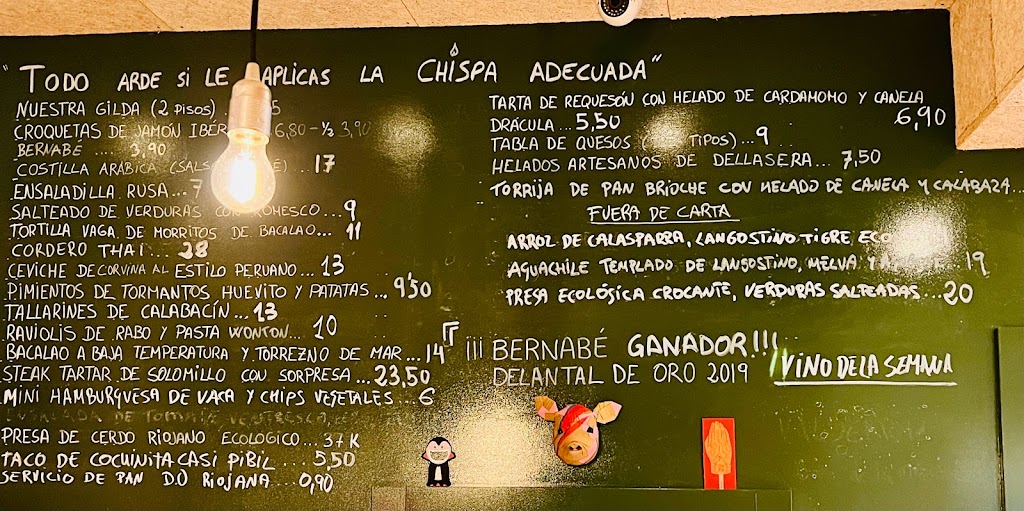 "TODO ARDE SI LE APLICAS LA CHISPA ADECUADA"
NUESTRA GILDA (2 PISOS)
CROQUETAS DE JAMÓN 6,80 - ½ 3,90
BERNABÉ .... 3,90
COSTILLA ARÁBICA ... 17
ENSALADILLA RUSA... 7
SALTEADO DE VERDURAS CON ROMESCO... 9
TORTILLA VAGA DE MORRITOS DE BACALAO... 11
CORDERO THAI ... 28
CEVICHE DE CORVINA AL ESTILO PERUANO... 13
PIMIENTOS DE TORMANTOS HUEVITO Y PATATAS ... 9'50
TALLARINES DE CALABACÍN... 13
RAVIOLIS DE RABO Y PASTA WONTON... 10
BACALAO A BAJA TEMPERATURA Y TORREZNO DE MAR... 14
STEAK TARTAR DE SOLOMILLO CON SORPRESA... 23,50
MINI HAMBURGUESA DE VACA Y CHIPS VEGETALES... 6
ENSALADA DE TOMATE
PRESA DE CERDO RIOJANO ECOLOGICO... 37 K
TACO DE COCHINITA CASI PIBIL ... 5,50
SERVICIO DE PAN D.O RIOJANA ... 0,90
TARTA DE REQUESÓN CON HELADO DE CARDAMOMO Y CANELA
6,90
DRÁCULA... 5,50
TABLA DE QUESOS TIPOS)... 9
HELADOS ARTESANOS DE DELLASERA... 7,50
TORRIJA DE PAN BRIOCHE CON HELADO DE CANELA Y CALABAZA...
FUERA DE CARTA
ARROZ DE CALASPARRA, LANGOSTINO TIGRE
AGUACHILE TEMPLADO DE LANGOSTINO, MELVA Y 19
PRESA ECOLÓGICA CROCANTE, VERDURAS SALTEADAS... 20
¡¡¡ BERNABÉ GANADOR!!!
DELANTAL DE ORO 2019
VINO DE LA SEMANA